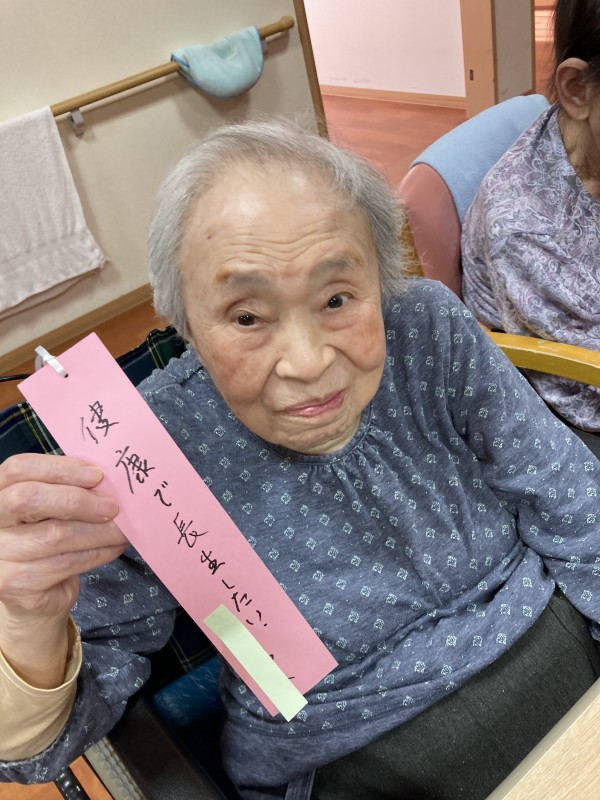 健康で長生したい